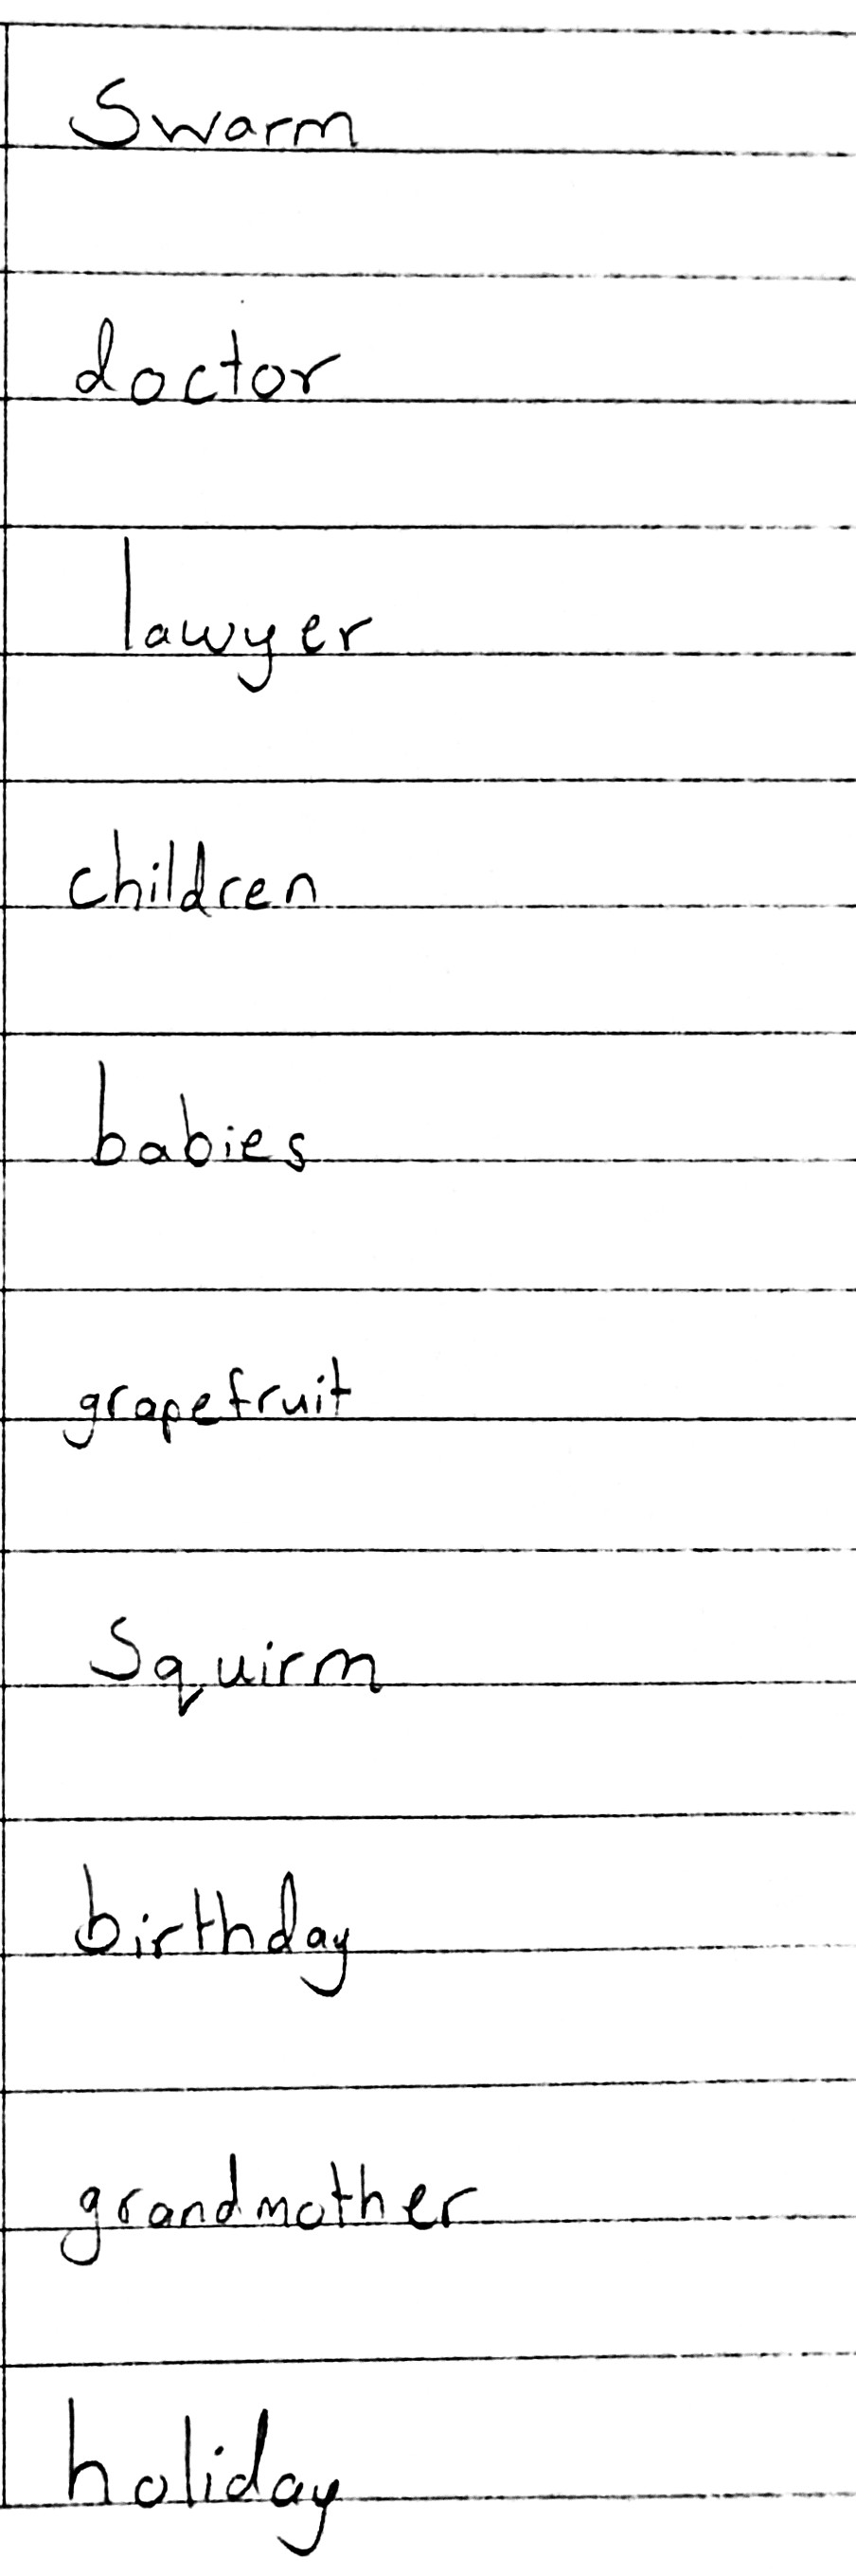 Swarm
doctor
lawyer
children
babies
grapefruit
Squirm
birthday
grandmother
holiday